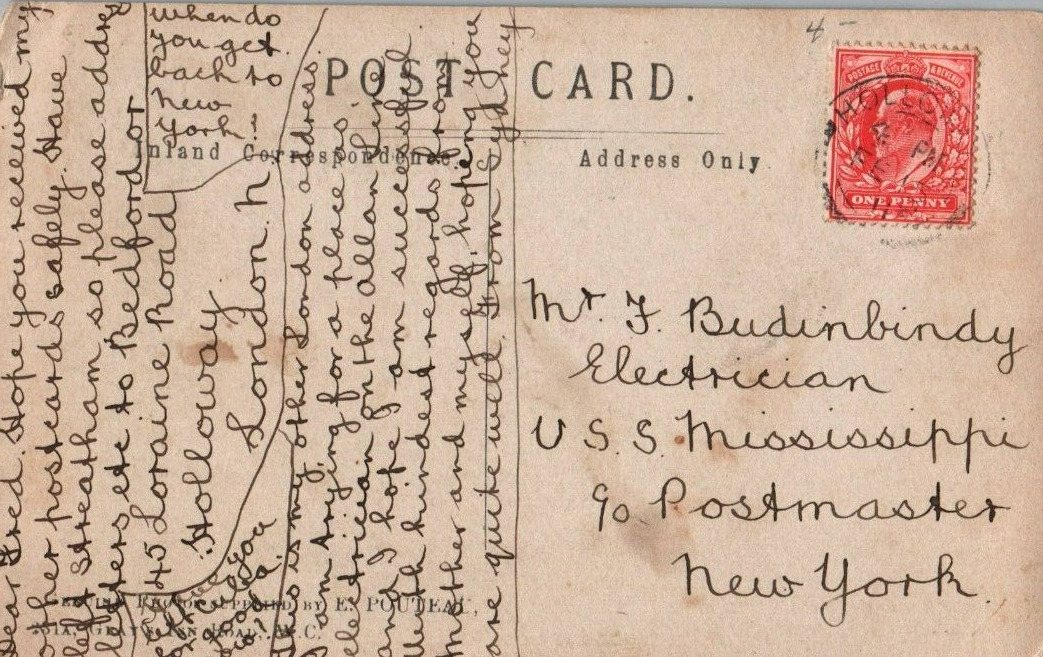 4 -
POST CARD.
Inland Correspondence.
Address Only.
POSTAGE & REVENUE
ONE PENNY
Mr. F. Budinbindy
Electrician
U S S. Mississippi
c/o Postmaster
New York.
Dear Fred. Hope you received my
other postcards safely. Have
left Streatham so please address
letters etc to Bedford or
45 Loraine Road
Holloway
London. N
This is my other London address
I am trying for a place as
electrician on the Allan Line
and I hope I am successful
With kindest regards from
mother and myself, hoping you
are quite well. From Sydney
when do
you get
back to
New
York?
Photo supplied by E. POUTEAU,
Gray's Inn Road, W.C.